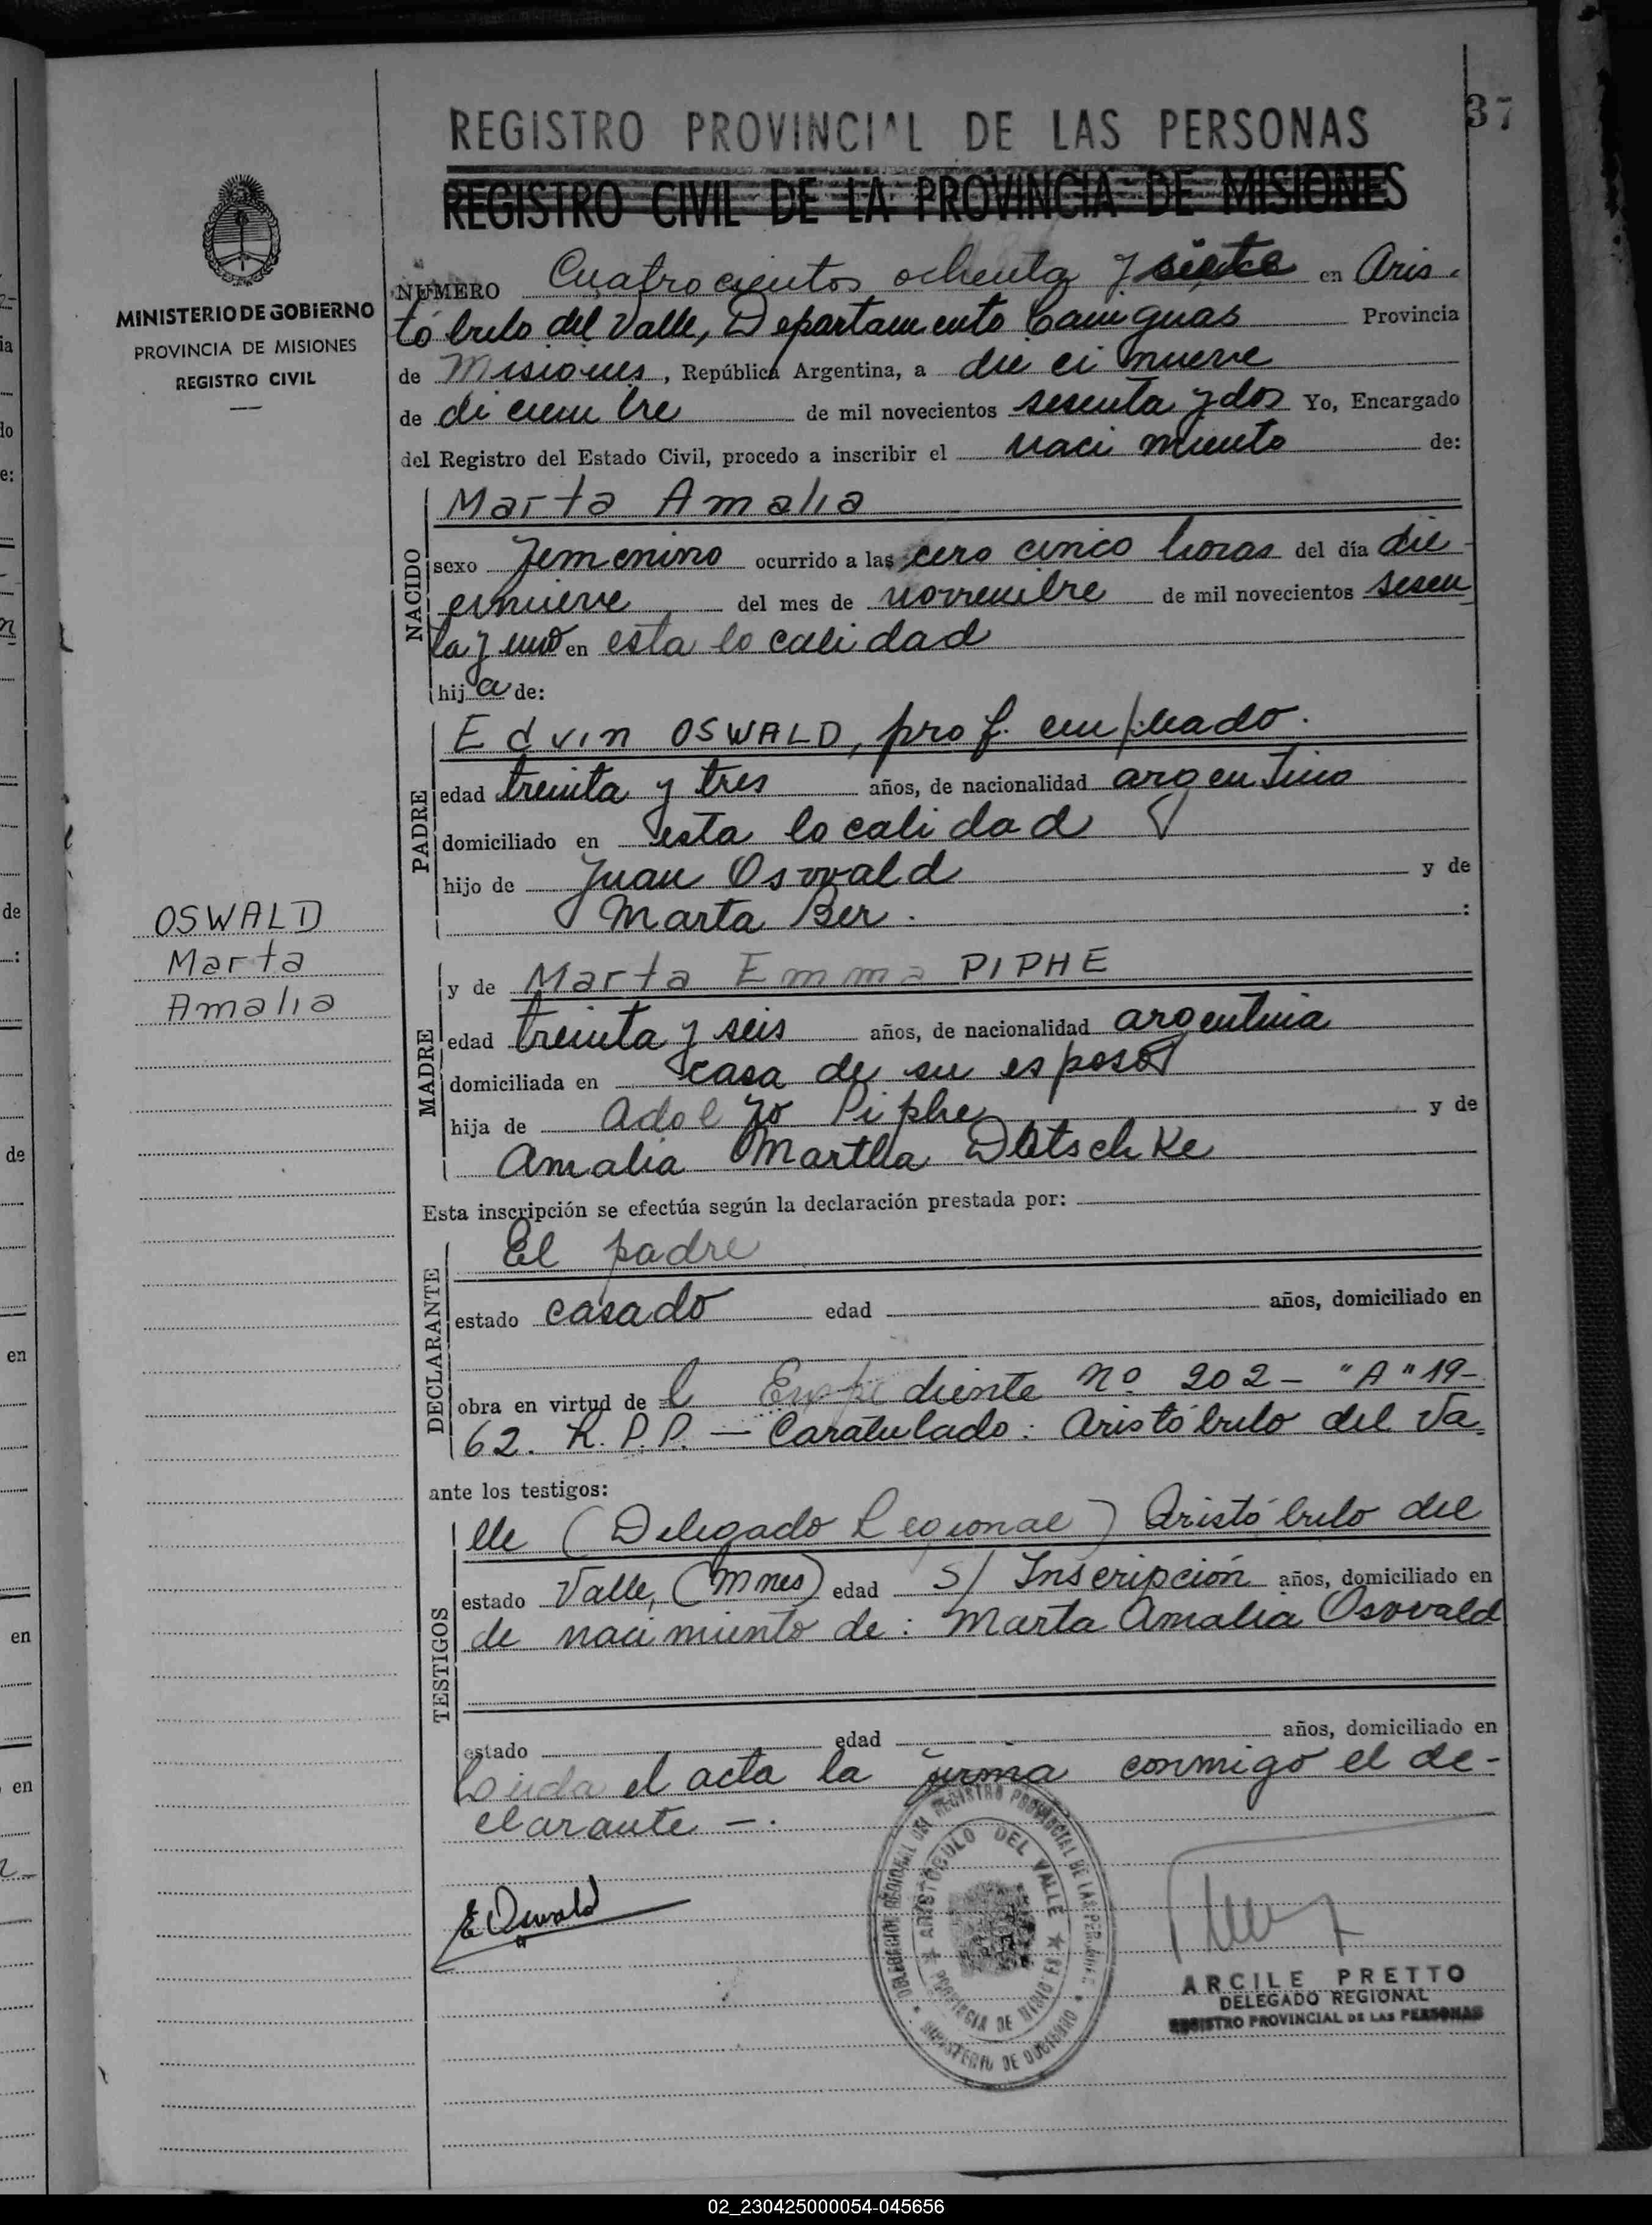 37
REGISTRO PROVINCIAL DE LAS PERSONAS
REGISTRO CIVIL DE LA PROVINCIA DE MISIONES
MINISTERIO DE GOBIERNO
PROVINCIA DE MISIONES
REGISTRO CIVIL
NUMERO Cuatrocientos ochenta y siete en Aris-
tóbulo del Valle, Departamento Cainguas Provincia
de Misiones, República Argentina, a diecinueve
de diciembre de mil novecientos sesenta y dos Yo, Encargado
del Registro del Estado Civil, procedo a inscribir el nacimiento de:
NACIDO
Marta Amalia
sexo femenino ocurrido a las cero cinco horas del día die
cinueve del mes de noviembre de mil novecientos sesen
ta y uno en esta localidad
hija de:
PADRE
Edvin OSWALD, prof. empleado.
edad treinta y tres años, de nacionalidad argentino
domiciliado en esta localidad
hijo de Juan Oswald y de
Marta Ber. :
OSWALD
Marta
Amalia
MADRE
y de Marta Emma PIPHE
edad treinta y seis años, de nacionalidad argentina
domiciliada en casa de su esposo
hija de Adolfo Piphe y de
Amalia Martha
Esta inscripción se efectúa según la declaración prestada por:
DECLARANTE
El padre
estado casado edad años, domiciliado en
obra en virtud del Expediente Nº 202 - "A" 19-
62. R.P.P. - Caratulado: Aristóbulo del Va-
ante los testigos:
TESTIGOS
lle (Delegado Regional) Aristóbulo del
estado Valle, (Mnes) edad S/ Inscripción años, domiciliado en
de nacimiento de: Marta Amalia Oswald
estado edad años, domiciliado en
Leida el acta la firma conmigo el de-
clarante -.
E Oswald
DELEGACION REGIONAL DEL REGISTRO PROVINCIAL DE LAS PERSONAS
ARISTOBULO DEL VALLE
PROVINCIA DE MISIONES
MINISTERIO DE GOBIERNO
ARCILE PRETTO
DELEGADO REGIONAL
REGISTRO PROVINCIAL DE LAS PERSONAS
02_230425000054-045656